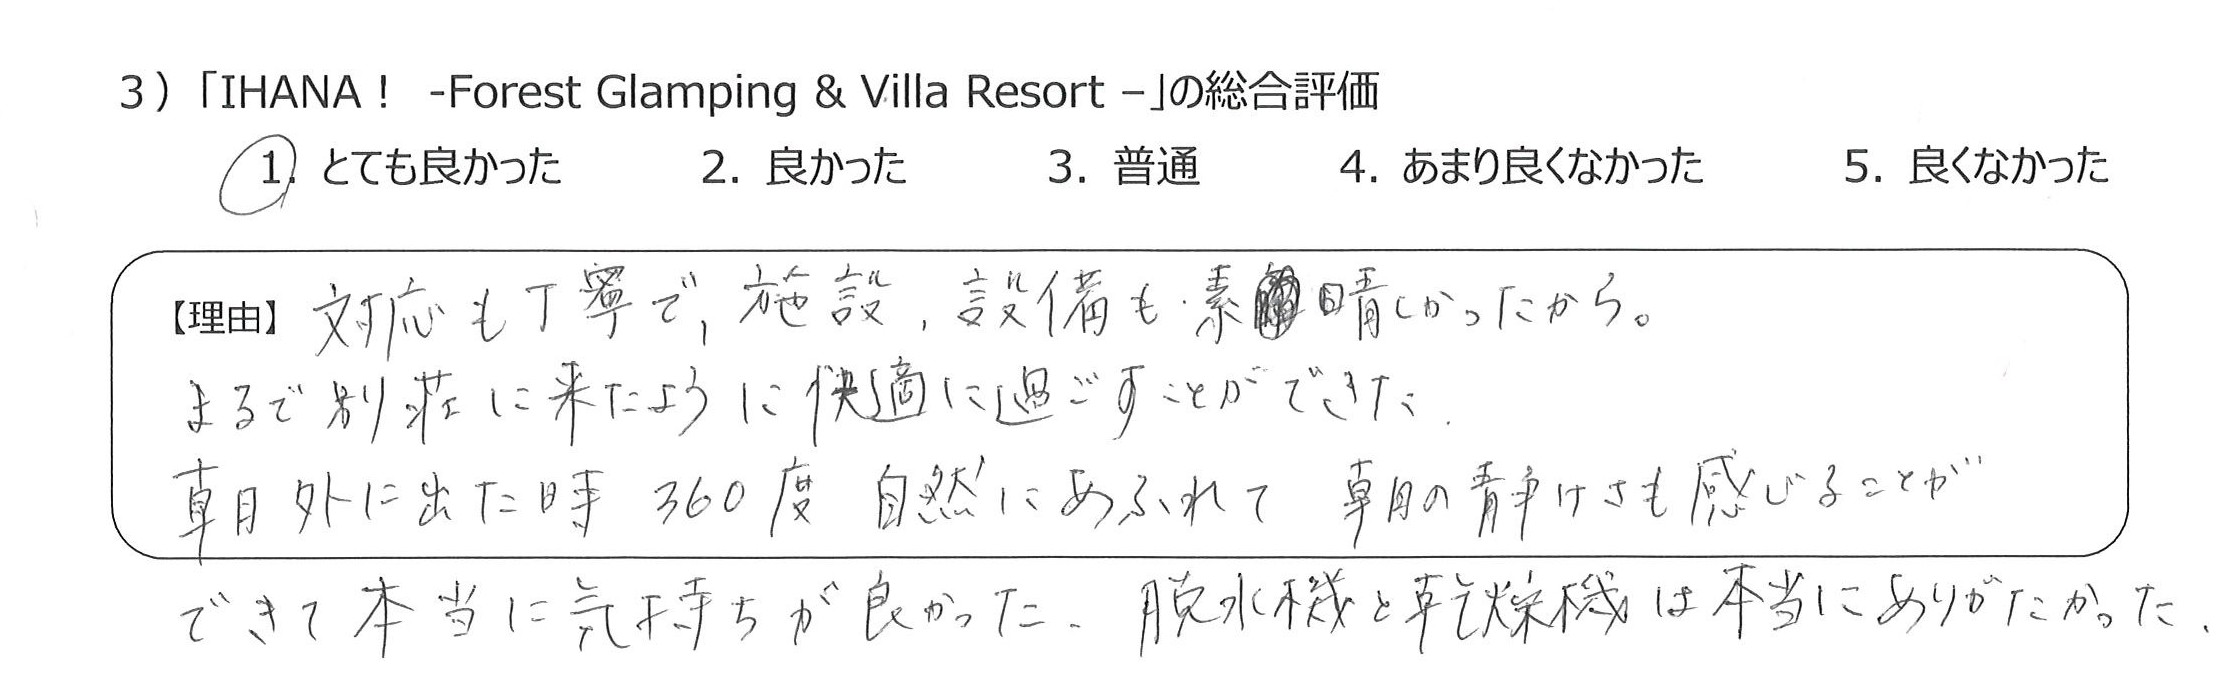 3）「IHANA！ -Forest Glamping & Villa Resort –」の総合評価
1. とても良かった 2. 良かった 3. 普通 4. あまり良くなかった 5. 良くなかった
【理由】対応も丁寧で、施設、設備も素晴しかったから。
まるで別荘に来たように快適に過ごすことができた。
朝外に出た時 360度 自然にあふれて 朝の静けさも感じることが
できて本当に気持ちが良かった。脱水機と乾燥機は本当にありがたかった。